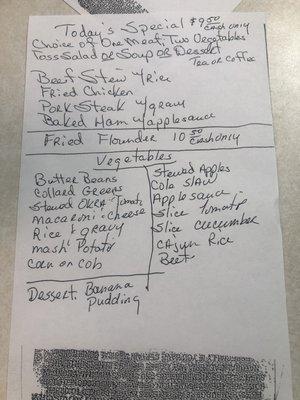 Today's Special $9.50 cash only
Choice of One Meat; Two Vegetables
Toss Salad or Soup or Dessert
Tea or Coffee
Beef Stew w/Rice
Fried Chicken
Pork Steak w/gravy
Baked Ham w/applesauce
Fried Flounder 10.50 cash only
Vegetables
Butter Beans
Collard Greens
Stewed Okra-Tomato
Macaroni-Cheese
Rice & gravy
mash Potato
Corn on Cob
Stewed Apples
Cole Slaw
Applesauce
Slice tomato
Slice cucumber
Cajun Rice
Beet
Dessert: Banana
Pudding